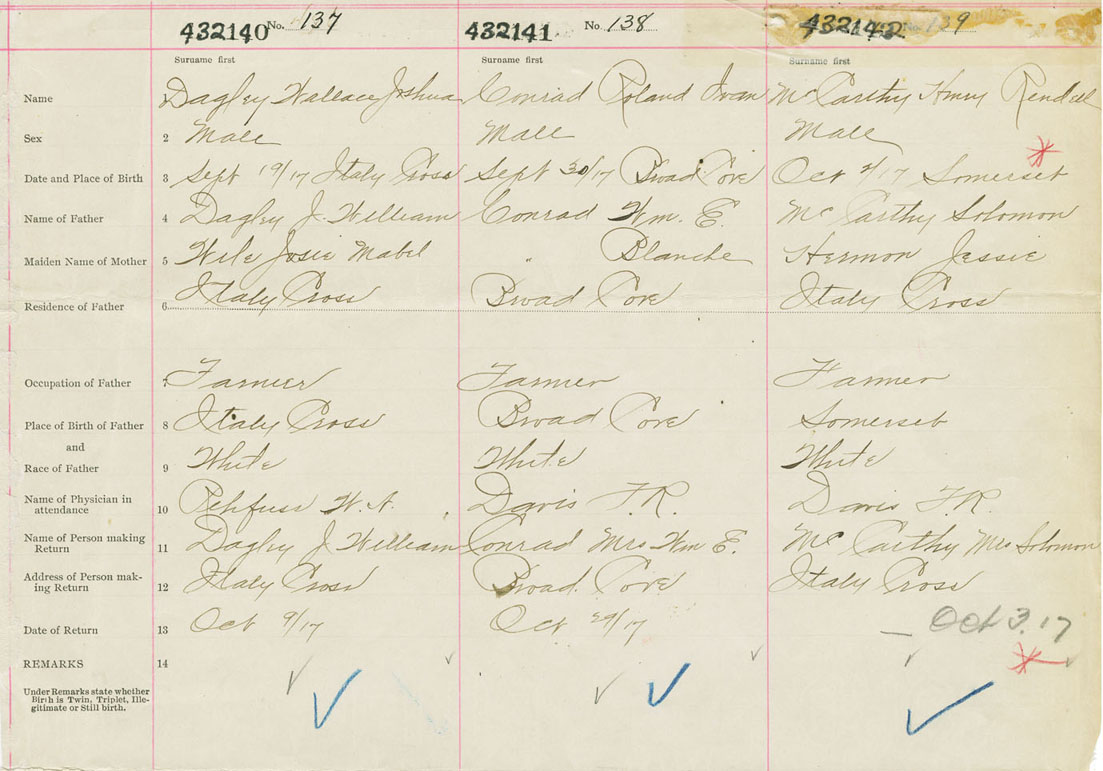 432140 No. 137 432141 No. 138 432142 No. 139
Surname first Surname first Surname first
Name 1 Dagley Wallace Joshua Conrad Roland Ivan McCarthy Henry Rendell
Sex 2 Male Male Male
Date and Place of Birth 3 Sept 19/17 Italy Cross Sept 30/17 Broad Cove Oct 2/17 Somerset
Name of Father 4 Dagley J. William Conrad Wm. E. McCarthy Solomon
Maiden Name of Mother 5 Wile Josie Mabel " Blanche Hermon Jessie
Residence of Father 6 Italy Cross Broad Cove Italy Cross
Occupation of Father 7 Farmer Farmer Farmer
Place of Birth of Father 8 Italy Cross Broad Cove Somerset
and
Race of Father 9 White White White
Name of Physician in
attendance 10 Rehfuss W. A. Davis F. R. Davis F. R.
Name of Person making
Return 11 Dagley J William Conrad Mrs Wm E. McCarthy Mrs Solomon
Address of Person mak-
ing Return 12 Italy Cross Broad Cove Italy Cross
Date of Return 13 Oct 9/17 Oct 29/17 — Oct 3. 17
REMARKS 14
Under Remarks state whether
Birth is Twin, Triplet, Ille-
gitimate or Still birth.